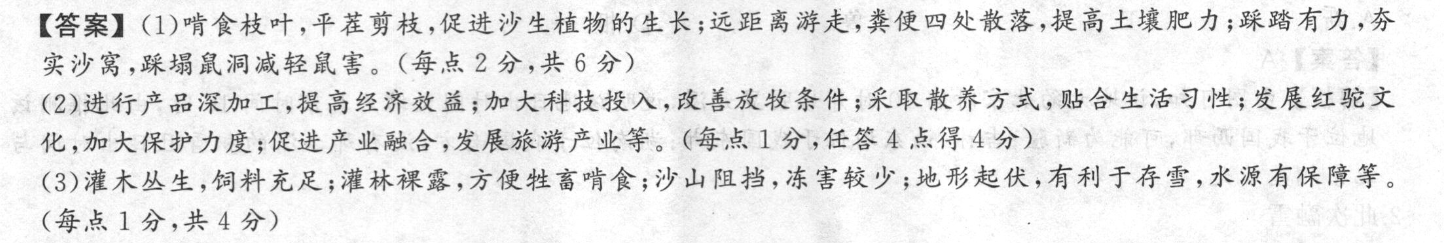 【答案】(1)啃食枝叶,平茬剪枝,促进沙生植物的生长;远距离游走,粪便四处散落,提高土壤肥力;踩踏有力,夯
实沙窝,踩塌鼠洞减轻鼠害。(每点2分,共6分)
(2)进行产品深加工,提高经济效益;加大科技投入,改善放牧条件;采取散养方式,贴合生活习性;发展红驼文
化,加大保护力度;促进产业融合,发展旅游产业等。(每点1分,任答4点得4分)
(3)灌木丛生,饲料充足;灌林裸露,方便牲畜啃食;沙山阻挡,冻害较少;地形起伏,有利于存雪,水源有保障等。
(每点1分,共4分)